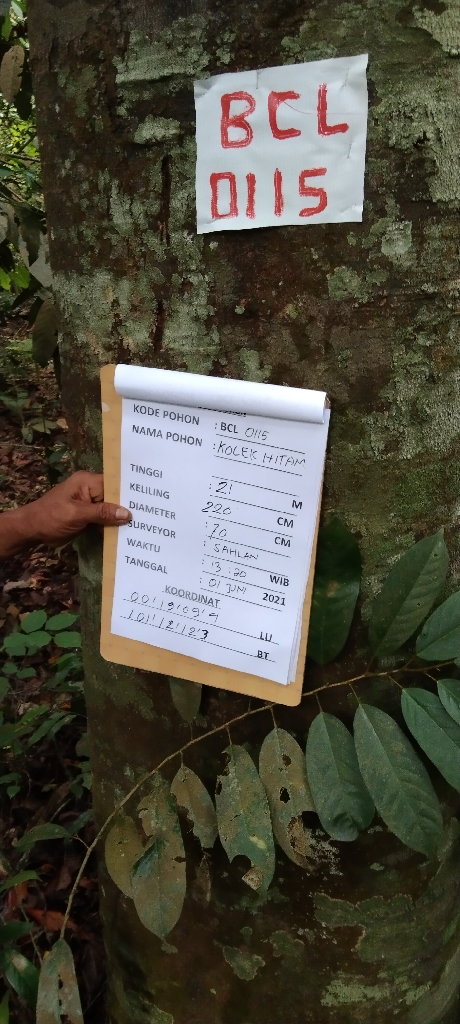 BCL
0115
KODE POHON : BCL 0115
NAMA POHON : KOLEK HITAM
TINGGI : 21 M
KELILING 220 CM
DIAMETER : 70 CM
SURVEYOR : SAHLAN
WAKTU : 13:20 WIB
TANGGAL : 01 JUNI 2021
KOORDINAT
LU
BT